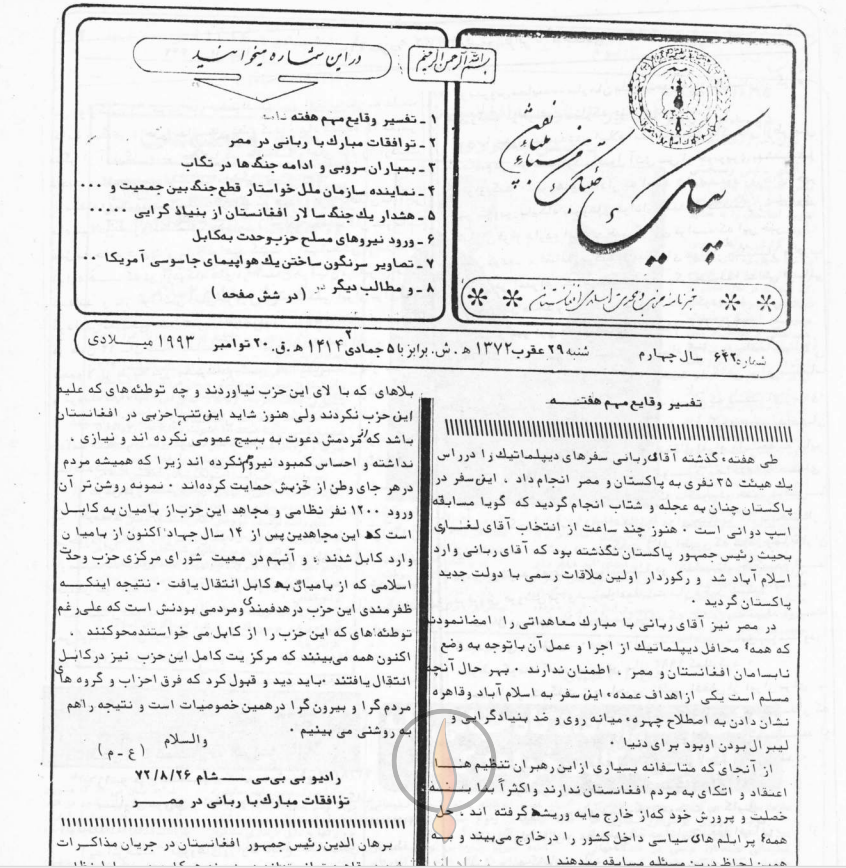 بسم الله الرحمن الرحیم
در این شماره میخوانید
۱ ـ تفسیر وقایع مهم هفته
۲ ـ توافقات مبارك با ربانی در مصر
۳ ـ بمباران سروبی و ادامه جنگ‌ها در تگاب
۴ ـ نماینده سازمان ملل خواستار قطع جنگ بین جمعیت و ۰۰۰
۵ ـ هشدار یك جنگ سالار افغانستان از بنیاد گرایی ۰۰۰۰۰
۶ ـ ورود نیروهای مسلح حزب وحدت به کابل
۷ ـ تصاویر سرنگون ساختن یك هواپیمای جاسوسی آمریکا ۰۰
۸ ـ و مطالب دیگر (در شش صفحه)
شماره ۶۴۲ سال چهارم شنبه ۲۹ عقرب ۱۳۷۲ ه‍ .ش. برابر با ۵ جمادی ۲ ۱۴۱۴ ه‍ .ق. ۲۰ نوامبر ۱۹۹۳ میلادی
تفسیر وقایع مهم هفتـــه
طی هفتهء گذشته آقای ربانی سفرهای دیپلماتیك را در راس
یك هیئت ۳۵ نفری به پاکستان و مصر انجام داد ، این سفر در
پاکستان چنان به عجله و شتاب انجام گردید که گویا مسابقه
اسپ دوانی است ۰ هنوز چند ساعت از انتخاب آقای لغاری
بحیث رئیس جمهور پاکستان نگذشته بود که آقای ربانی وارد
اسلام آباد شد و رکوردار اولین ملاقات رسمی با دولت جدید
پاکستان گردید ۰
در مصر نیز آقای ربانی با مبارك معاهداتی را امضا نمودند
که همهء محافل دیپلماتیك از اجرا و عمل آن با توجه به وضع
نابسامان افغانستان و مصر ، اطمنان ندارند ۰ بهر حال آنچه
مسلم است یکی از اهداف عمدهء این سفر به اسلام آباد و قاهره
نشان دادن به اصطلاح چهرهء میانه روی و ضد بنیادگرایی و
لیبرال بودن او بود برای دنیا ۰
از آنجای که متاسفانه بسیاری از این رهبران تنظیم هــا
اعتقاد و اتکای به مردم افغانستان ندارند و اکثراً بنا بـــه
خصلت و پرورش خود که از خارج مایه و ریشه گرفته اند ، حل
همهء پرابلم های سیاسی داخل کشور را در خارج می‌بیند و بـه
همین لحاظ در بین مسئله مسابقه میدهند !
بلاهای که با لای این حزب نیاوردند و چه توطئه‌های که علیه
این حزب نکردند ولی هنوز شاید این تنها حزبی در افغانستان
باشد که از مردمش دعوت به بسیج عمومی نکرده اند و نیازی ،
نداشته و احساس کمبود نیرو هم نکرده اند زیرا که همیشه مردم
در هر جای وطن از حزبش حمایت کرده‌اند ۰ نمونه روشن تر آن
ورود ۱۲۰۰ نفر نظامی و مجاهد این حزب از بامیان به کابـــل
است که این مجاهدین پس از ۱۴ سال جهاد اکنون از بامیان
وارد کابل شدند ، و آنهم در معیت شورای مرکزی حزب وحدت
اسلامی که از بامیان به کابل انتقال یافت ۰ نتیجه اینکـــه
ظفرمندی این حزب در هدفمندی و مردمی بودنش است که علی رغم
توطئه‌های که این حزب را از کابل می خواستند محو کنند ،
اکنون همه می‌بینند که مرکزیت کامل این حزب نیز در کابل
انتقال یافتند ۰ باید دید و قبول کرد که فرق احزاب و گروه های
مردم گرا و بیرون گرا در همین خصوصیات است و نتیجه را هم
به روشنی می بینیم ۰
والسلام
(ع ـ م)
رادیو بی بی‌سی ـــ شام ۷۲/۸/۲۶
توافقات مبارك با ربانی در مصـــر
برهان الدین رئیس جمهور افغانستان در جریان مذاکـرات